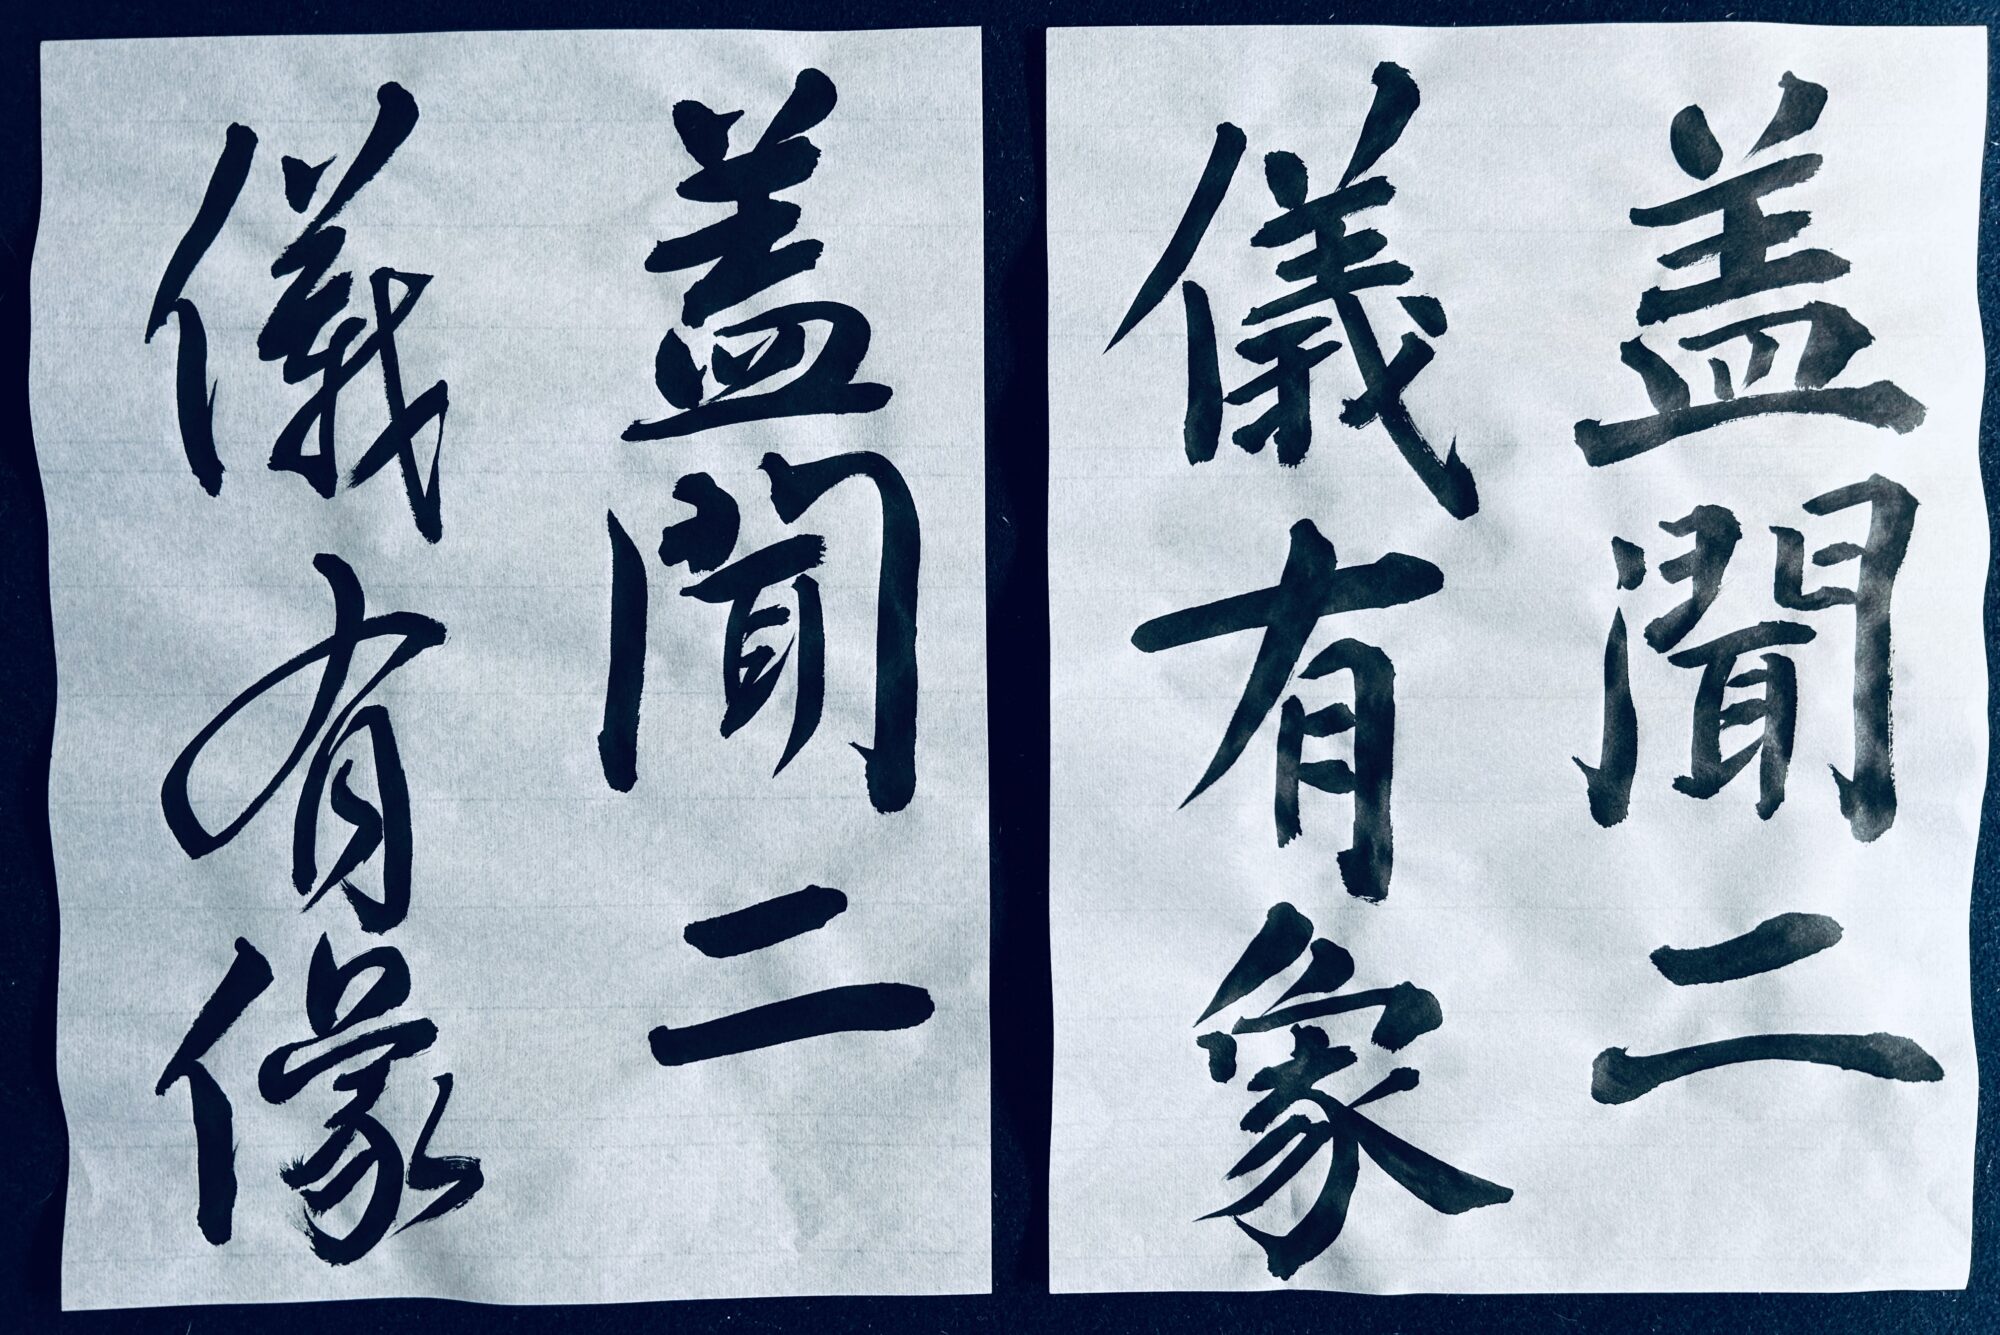 盖聞二
儀有象
盖聞二
儀有像